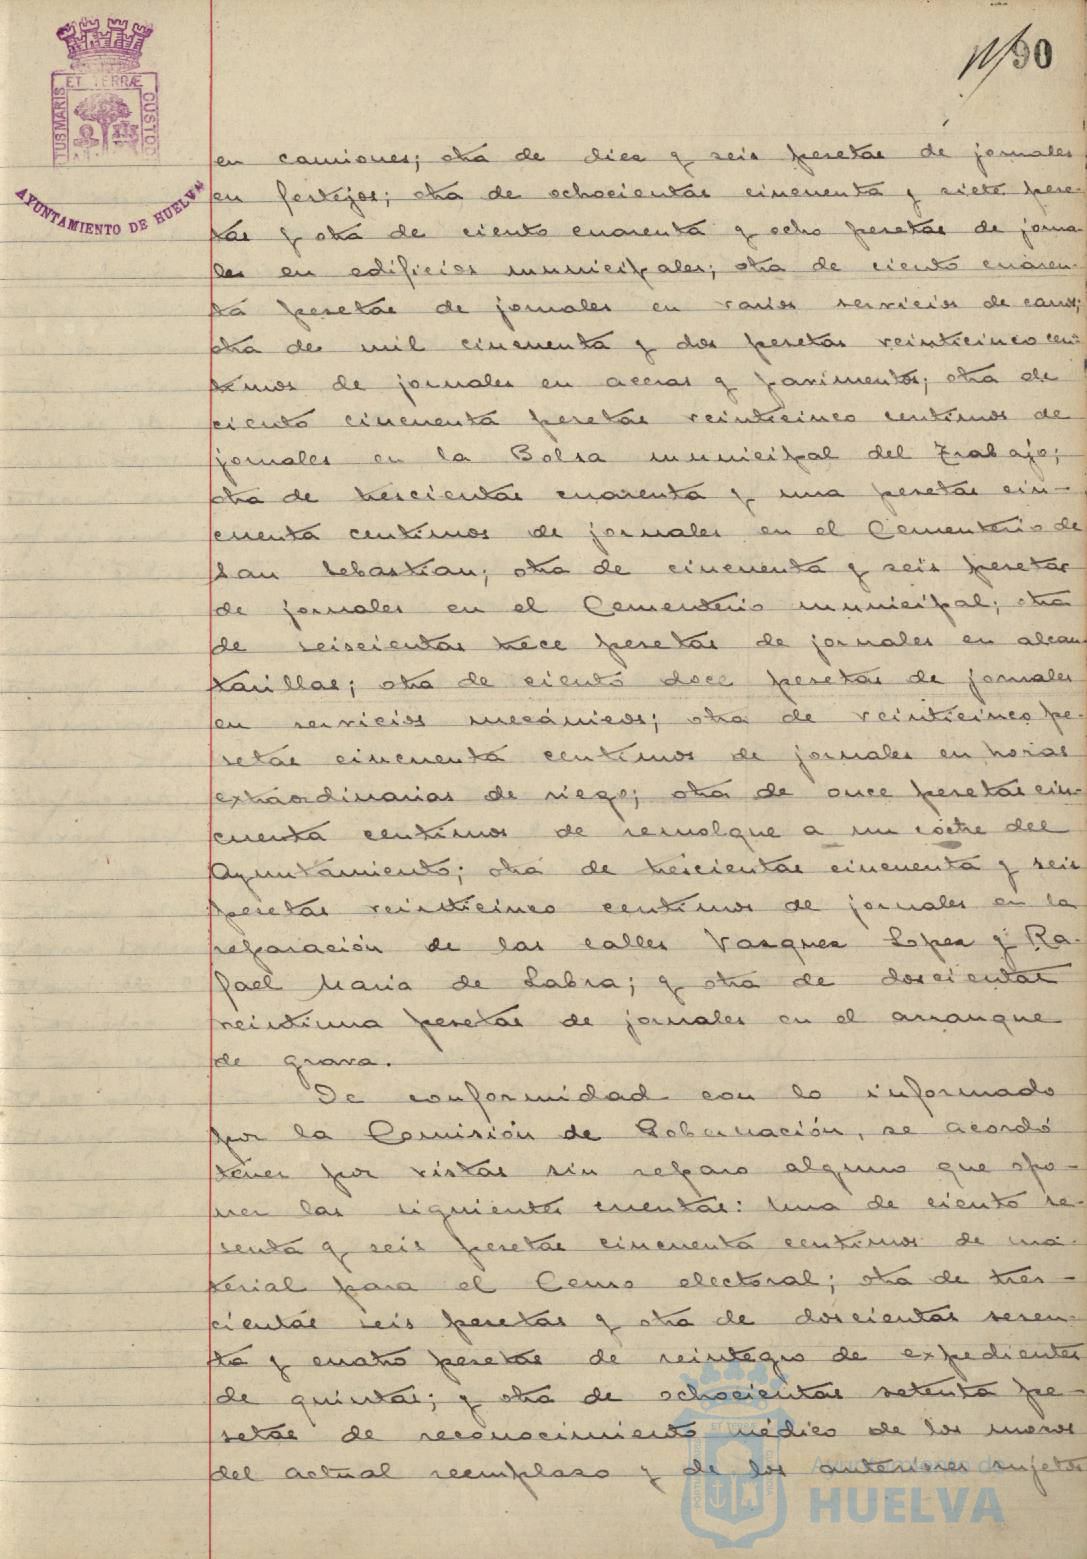 90
ET TERRÆ
TUS MARIS
CUSTOD
AYUNTAMIENTO DE HUELVA
en camiones; otra de diez y seis pesetas de jornales
en festejos; otra de ochocientas cincuenta y siete pese-
tas y otra de ciento cuarenta y ocho pesetas de jorna
les en edificios municipales; otra de ciento cuaren-
ta pesetas de jornales en varios servicios de
otra de mil cincuenta y dos pesetas veinticinco cen
timos de jornales en aceras y pavimentos; otra de
ciento cincuenta pesetas veinticinco centimos de
jornales en la Bolsa municipal del Trabajo;
otra de trescientas cuarenta y una pesetas cin-
cuenta centimos de jornales en el Cementerio de
San Sebastian; otra de cincuenta y seis pesetas
de jornales en el Cementerio municipal; otra
de seiscientas trece pesetas de jornales en alcan-
tarillas; otra de ciento doce pesetas de jornales
en servicios mecánicos; otra de veinticinco pe-
setas cincuenta centimos de jornales en horas
extraordinarias de riego; otra de once pesetas cin-
cuenta centimos de remolque a un coche del
Ayuntamiento; otra de trescientas cincuenta y seis
pesetas veinticinco centimos de jornales en la
reparación de las calles Vazquez Lopez y Ra-
fael Maria de Labra; y otra de doscientas
veintiuna pesetas de jornales en el arranque
de grava.
De conformidad con lo informado
por la Comisión de Gobernación, se acordó
tener por vistas sin reparo alguno que opo-
ner las siguientes cuentas: Una de ciento se-
senta y seis pesetas cincuenta centimos de ma-
terial para el Censo electoral; otra de tres-
cientas seis pesetas y otra de doscientas seten-
ta y cuatro pesetas de reintegro de expedientes
de quintas; y otra de ochocientas setenta pe-
setas de reconocimiento médico de los mozos
del actual reemplazo y de los anteriores sujetos
Ayuntamiento de
HUELVA